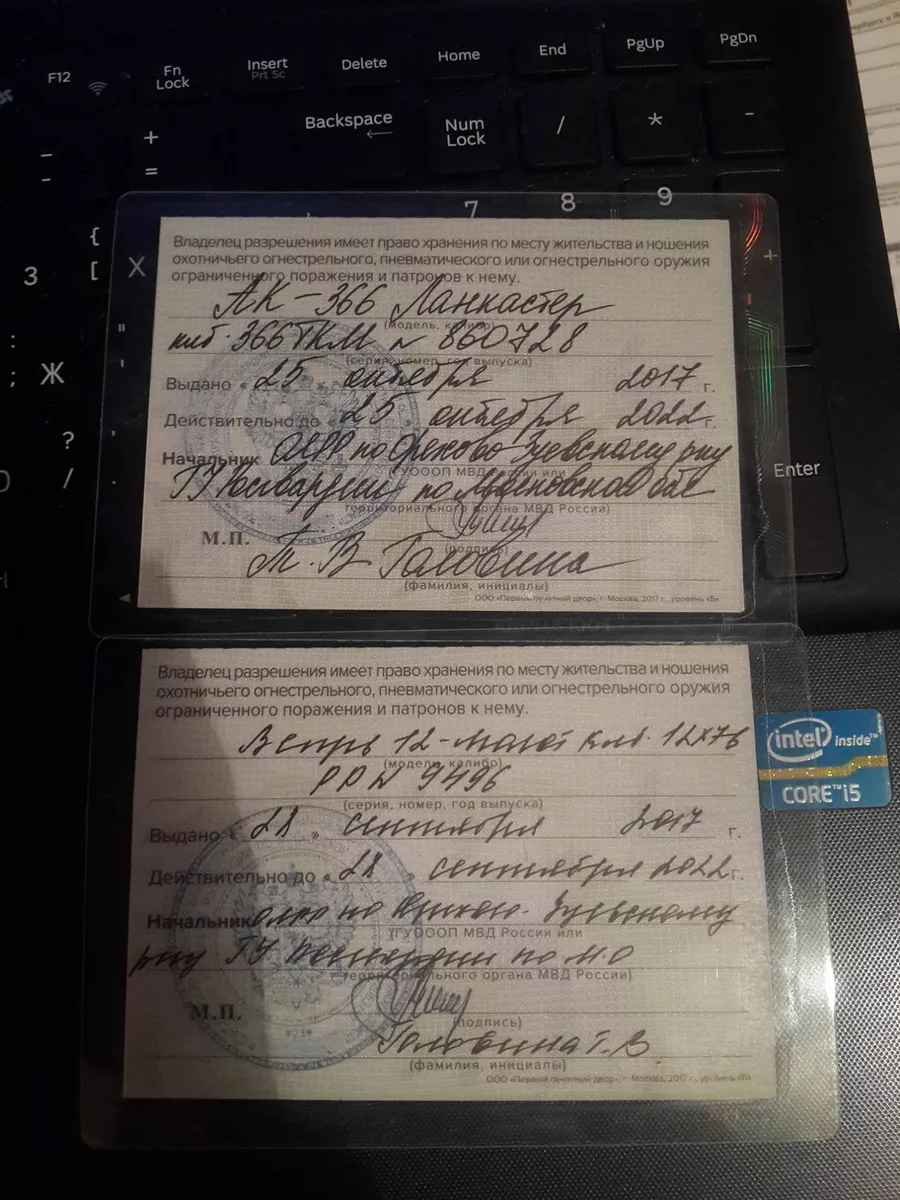 F12
Fn
Lock
Insert
Prt Sc
Delete
Home
End
PgUp
PgDn
+
=
-
-
Backspace
Num
Lock
/
*
-
7
8
9
+
{
[
Х
З
:
;
Ж
"
'
?
/
Enter
Владелец разрешения имеет право хранения по месту жительства и ношения
охотничьего огнестрельного, пневматического или огнестрельного оружия
ограниченного поражения и патронов к нему.
АК-366 Ланкастер
(модель, калибр)
клб. 366ТКМ № 860728
(серия, номер, год выпуска)
Выдано « 25 » октября 2017 г.
Действительно до « 25 октября 2022 г.
Начальник ОЛРР по Орехово-Зуевскому р-ну
(ГУОООП МВД России или
ГУ Росгвардии по Московской обл
территориального органа МВД России)
(подпись)
М.П.
Т. В Головина
(фамилия, инициалы)
ООО «Первый печатный двор», г. Москва, 2017 г., уровень «Б»
Владелец разрешения имеет право хранения по месту жительства и ношения
охотничьего огнестрельного, пневматического или огнестрельного оружия
ограниченного поражения и патронов к нему.
Вепрь 12-Молот клб. 12х76
(модель, калибр)
№ 9496
(серия, номер, год выпуска)
Выдано « 28 » сентября 2017 г.
Действительно до « 28 сентября 2022 г.
Начальник ОЛРР по Орехово-Зуевскому
(ГУОООП МВД России или
р-ну ГУ Росгвардии по М.О
территориального органа МВД России)
М.П.
(подпись)
Головина Т. В
(фамилия, инициалы)
ООО «Первый печатный двор», г. Москва, 2017 г., уровень «Б»
intel inside™
CORE™i5